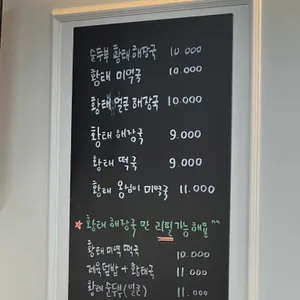 순두부 황태 해장국 10.000
황태 미역국 10.000
황태 얼큰 해장국 10.000
황태 해장국 9.000
황태 떡국 9.000
황태 옹심이 미역국 11.000
★황태 해장국 만 리필가능해요^^
황태 미역 떡국 10.000
제육덮밥 + 황태국 11.000
황태 순두부(얼큰) 11.000